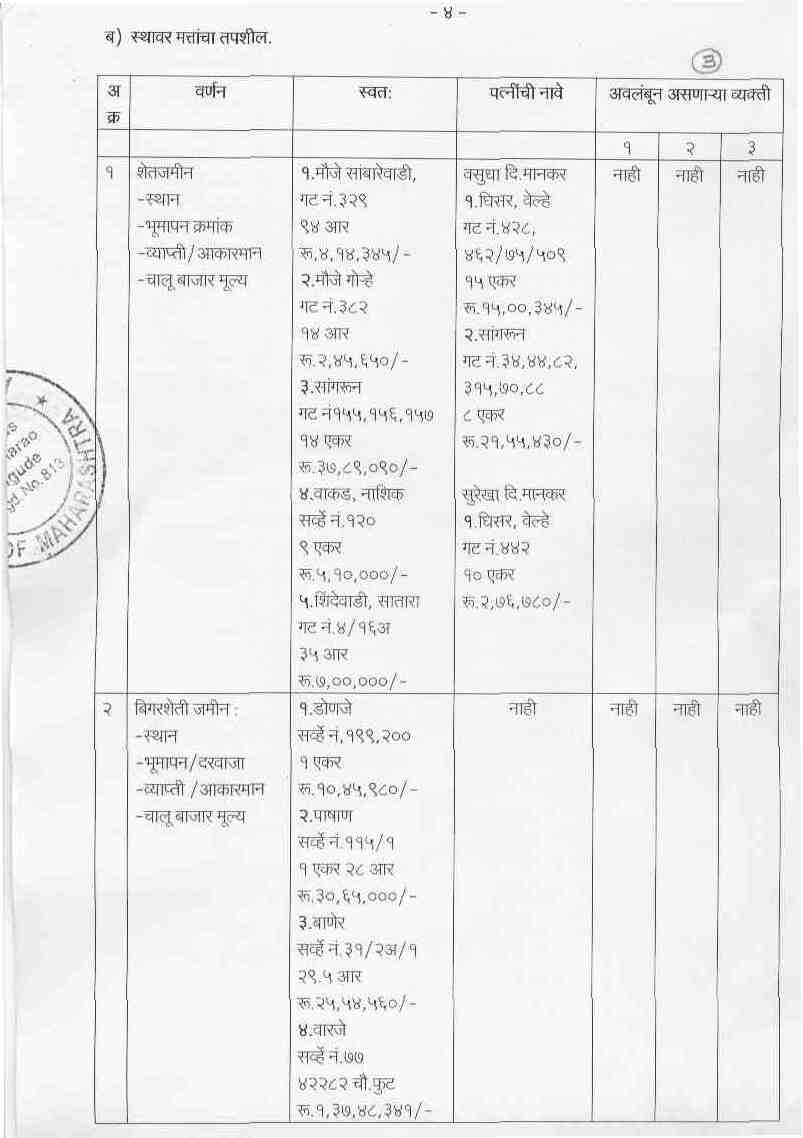 - ४ -
ब) स्थावर मत्तांचा तपशील.
३
अ क्र
वर्णन
स्वत:
पत्नींची नावे
अवलंबून असणाऱ्या व्यक्ती
१ २ ३
१
शेतजमीन
-स्थान
-भूमापन क्रमांक
-व्याप्ती/आकारमान
-चालू बाजार मूल्य
१.मौजे सांबारेवाडी,
गट नं.३२९
९४ आर
रू,४,१४,३४५/-
२.मौजे गोऱ्हे
गट नं.३८२
१४ आर
रू.२,४५,६५०/-
३.सांगरून
गट नं१५५,१५६,१५७
१४ एकर
रू.३७,८९,०९०/-
४.वाकड, नाशिक
सर्व्हे नं.१२०
९ एकर
रू.५,१०,०००/-
५.शिंदेवाडी, सातारा
गट नं.४/१६अ
३५ आर
रू.७,००,०००/-
वसुधा दि.मानकर
१.घिसर, वेल्हे
गट नं.४२८,
४६२/७५/५०९
१५ एकर
रू.१५,००,३४५/-
२.सांगरून
गट नं.३४,४४,८२,
३१५,७०,८८
८ एकर
रू.२१,५५,४३०/-
सुरेखा दि.मानकर
१.घिसर, वेल्हे
गट नं.४४२
१० एकर
रू.२,७६,७८०/-
नाही नाही नाही
२
बिगरशेती जमीन :
-स्थान
-भूमापन/दरवाजा
-व्याप्ती /आकारमान
-चालू बाजार मूल्य
१.डोणजे
सर्व्हे नं,१९९,२००
१ एकर
रू.१०,४५,९८०/-
२.पाषाण
सर्व्हे नं.११५/१
१ एकर २८ आर
रू.३०,६५,०००/-
३.बाणेर
सर्व्हे नं.३१/२अ/१
२९.५ आर
रू.२५,५४,५६०/-
४.वारजे
सर्व्हे नं.७७
४२२८२ चौ.फुट
रू.१,३७,४८,३४१/-
नाही
नाही नाही नाही
arao
gude
gd.No.813
OF MAHARASHTRA